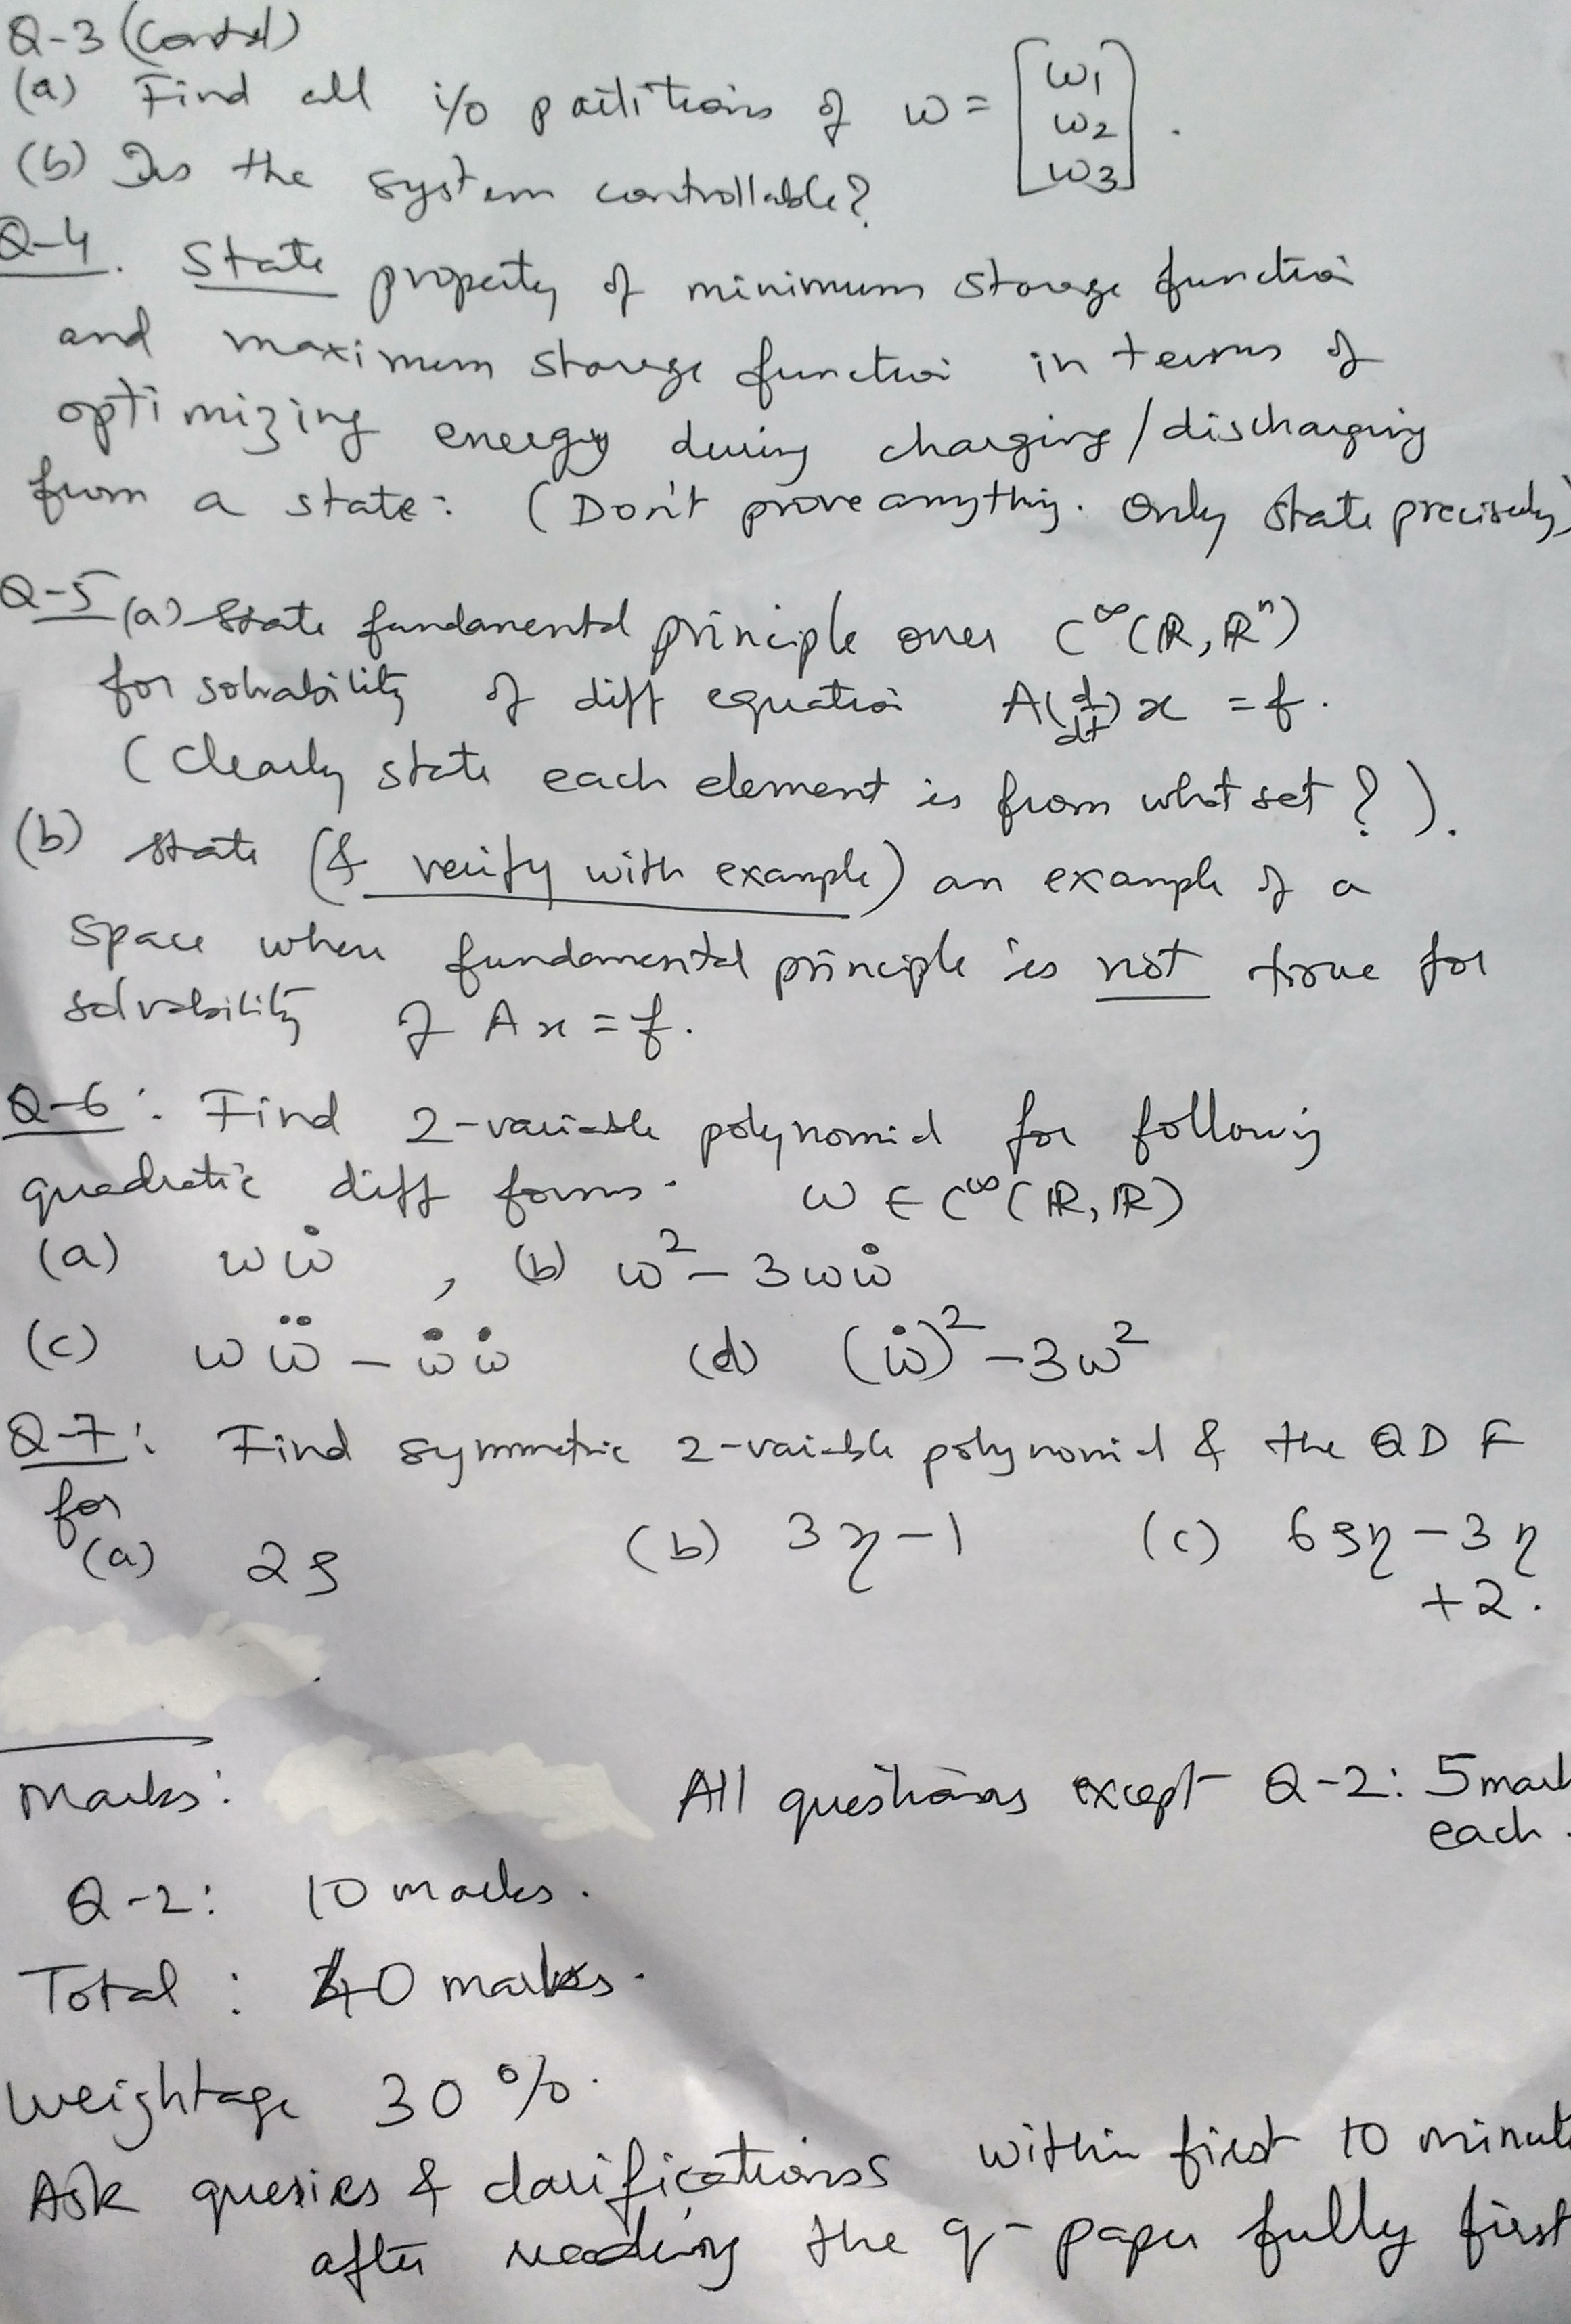 Q-3 (Contd)
(a) Find all i/o partitions of w = [w1 w2 w3].
(b) Is the system controllable?
Q-4. State property of minimum storage function
and maximum storage function in terms of
optimizing energy during charging/discharging
from a state: (Don't prove anything. Only state precisely)
Q-5 (a) State fundamental principle over C^∞(ℝ, ℝ^n)
for solvability of diff equation A(d/dt)x = f.
(Clearly state each element is from what set?).
(b) State (& verify with example) an example of a
space when fundamental principle is not true for
solvability of Ax = f.
Q-6: Find 2-variable polynomial for following
quadratic diff forms. w ∈ C^∞(ℝ, ℝ)
(a) wẇ , (b) w² - 3wẇ
(c) wẅ - ẇẇ (d) (ẇ)² - 3w²
Q-7: Find symmetric 2-variable polynomial & the QDF
for
(a) 2ζ (b) 3η - 1 (c) 6ζη - 3η
+2.
Marks: All questions except Q-2: 5 mark
each.
Q-2: 10 marks.
Total: 40 marks.
Weightage 30%.
Ask queries & clarifications within first 10 minute
after reading the q-paper fully first